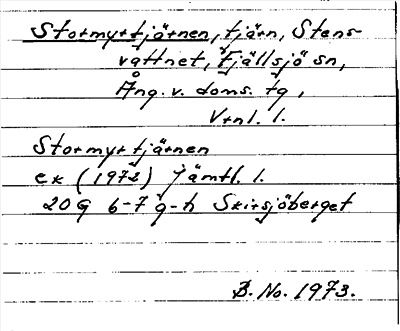 Stormyrtjärnen, tjärn, Stens-
vattnet, Fjällsjö sn,
Ång. v. doms. tg,
Vrnl. l.
Stormyrtjärnen
ek (1972) Jämtl. l.
20G 6-7 g-h Skirsjöberget
B. No. 1973.